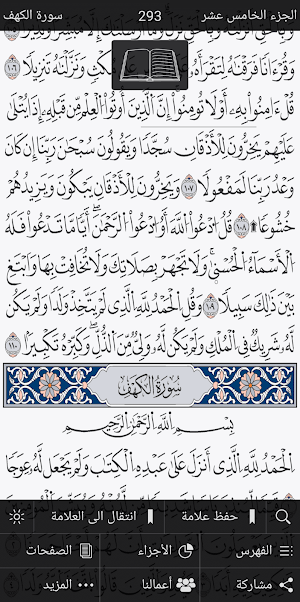 الجزء الخامس عشر 293 سورة الكهف
وَقُرْءَانًا فَرَقْنَٰهُ لِتَقْرَأَهُۥ مُكْثٍ وَنَزَّلْنَٰهُ تَنزِيلًا
قُلْ ءَامِنُوا۟ بِهِۦٓ أَوْ لَا تُؤْمِنُوٓا۟ إِنَّ ٱلَّذِينَ أُوتُوا۟ ٱلْعِلْمَ مِن قَبْلِهِۦٓ إِذَا يُتْلَىٰ
عَلَيْهِمْ يَخِرُّونَ لِلْأَذْقَانِ سُجَّدًا وَيَقُولُونَ سُبْحَٰنَ رَبِّنَآ إِن كَانَ
وَعْدُ رَبِّنَا لَمَفْعُولًا ١٠٧ وَيَخِرُّونَ لِلْأَذْقَانِ يَبْكُونَ وَيَزِيدُهُمْ
خُشُوعًا ۩ ١٠٨ قُلِ ٱدْعُوا۟ ٱللَّهَ أَوِ ٱدْعُوا۟ ٱلرَّحْمَٰنَ أَيًّا مَّا تَدْعُوا۟ فَلَهُ
ٱلْأَسْمَآءُ ٱلْحُسْنَىٰ وَلَا تَجْهَرْ بِصَلَاتِكَ وَلَا تُخَافِتْ بِهَا وَٱبْتَغِ
بَيْنَ ذَٰلِكَ سَبِيلًا ١٠٩ وَقُلِ ٱلْحَمْدُ لِلَّهِ ٱلَّذِى لَمْ يَتَّخِذْ وَلَدًا وَلَمْ يَكُن
لَّهُۥ شَرِيكٌ فِى ٱلْمُلْكِ وَلَمْ يَكُن لَّهُۥ وَلِىٌّ مِّنَ ٱلذُّلِّ وَكَبِّرْهُ تَكْبِيرًا ١١٠
سُورَةُ الكَهْفِ
بِسْمِ ٱللَّهِ ٱلرَّحْمَٰنِ ٱلرَّحِيمِ
ٱلْحَمْدُ لِلَّهِ ٱلَّذِىٓ أَنزَلَ عَلَىٰ عَبْدِهِ ٱلْكِتَٰبَ وَلَمْ يَجْعَل لَّهُۥ عِوَجًا
حفظ علامة انتقال الى العلامة
الفهرس الأجزاء الصفحات
مشاركة أعمالنا المزيد